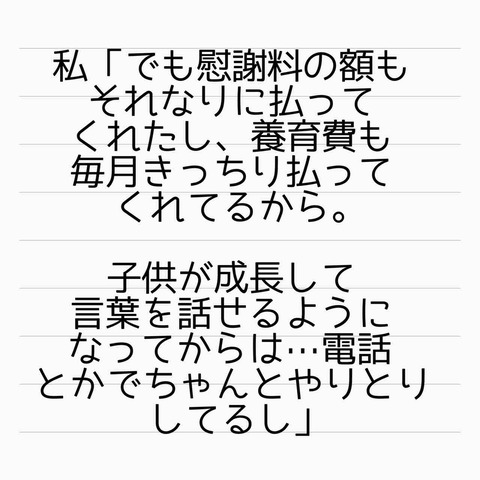 私「でも慰謝料の額も
それなりに払って
くれたし、養育費も
毎月きっちり払って
くれてるから。
子供が成長して
言葉を話せるように
なってからは…電話
とかでちゃんとやりとり
してるし」